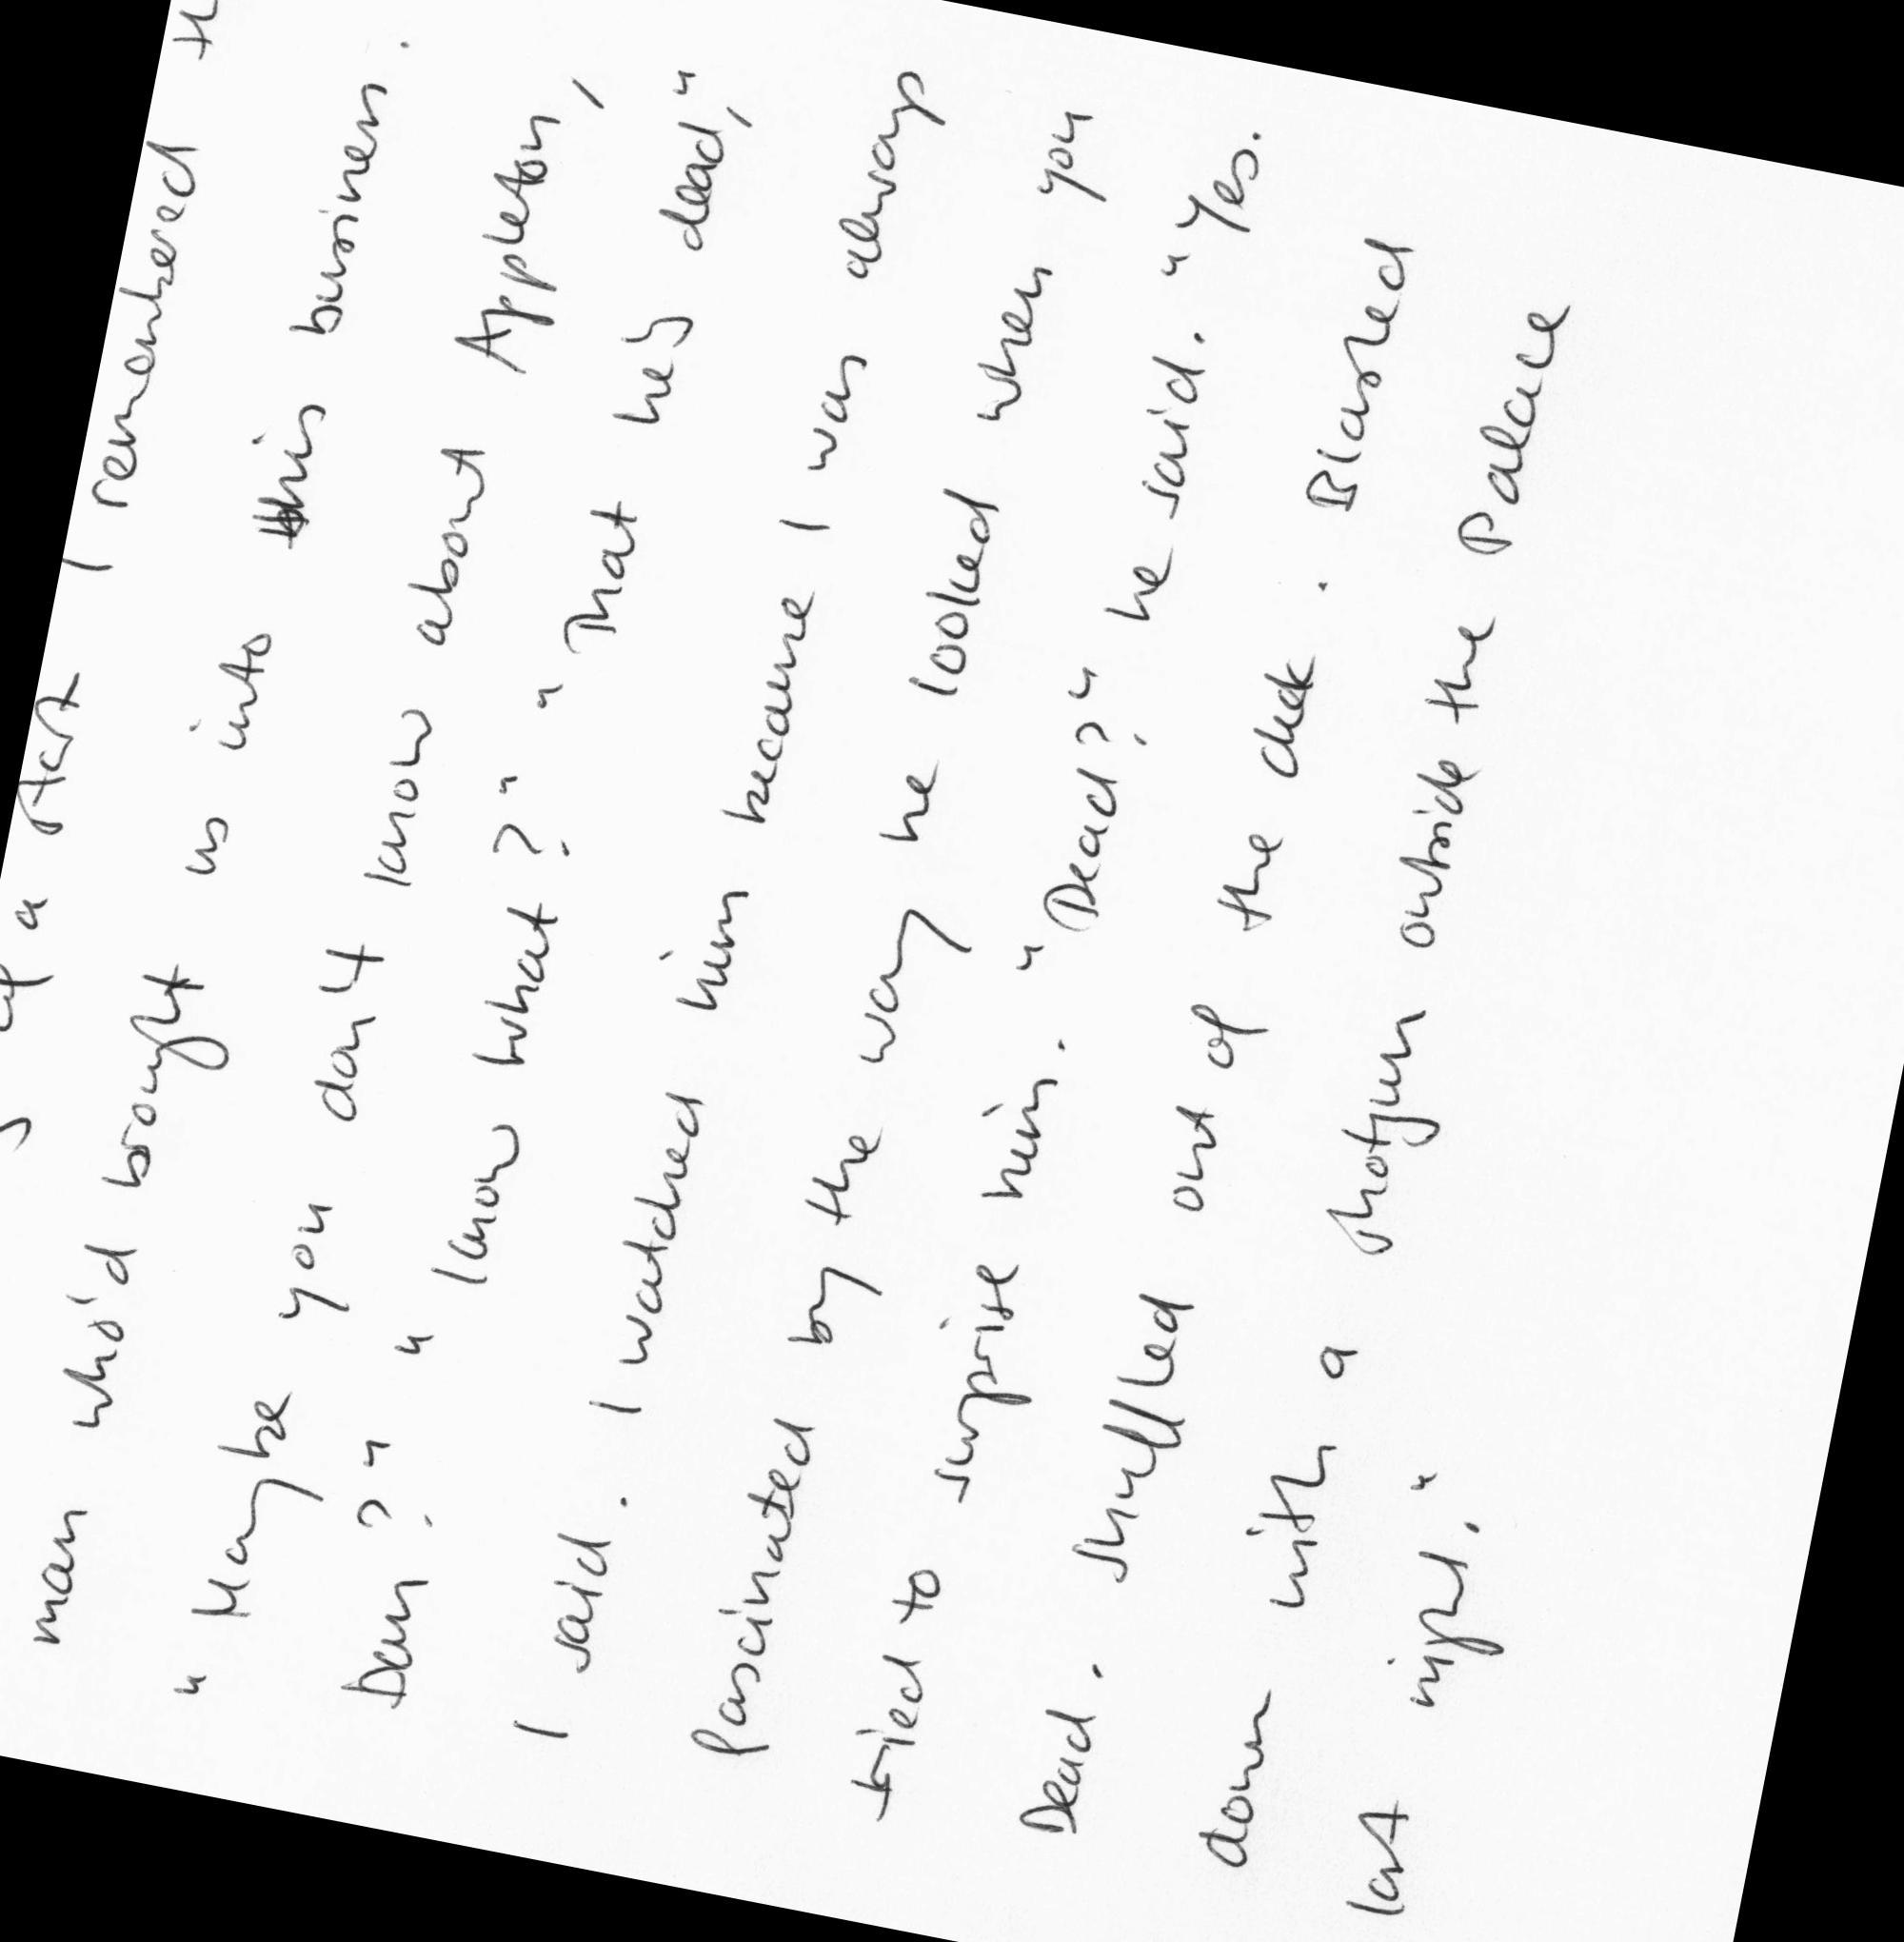 of a start I remembered
man who'd brought us into this business.
"Maybe you don't know about Appleton,
Dan?" "Know what?" "That he's dead,"
I said. I watched him because I was always
fascinated by the way he looked when you
tried to surprise him. "Dead?" he said. "Yes.
Dead. Shuffled out of the deck. Blasted
down with a shotgun outside the Palace
last night."